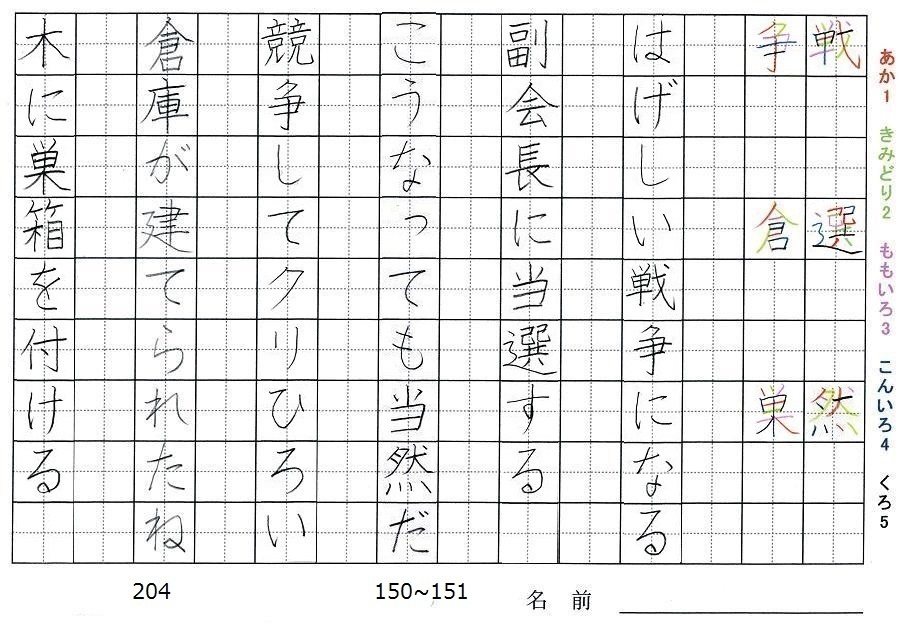 あか1 きみどり2 ももいろ3 こんいろ4 くろ5
戦 選 然
争 倉 巣
はげしい戦争になる
副会長に当選する
こうなっても当然だ
競争してクリひろい
倉庫が建てられたね
木に巣箱を付ける
204 150~151 名前